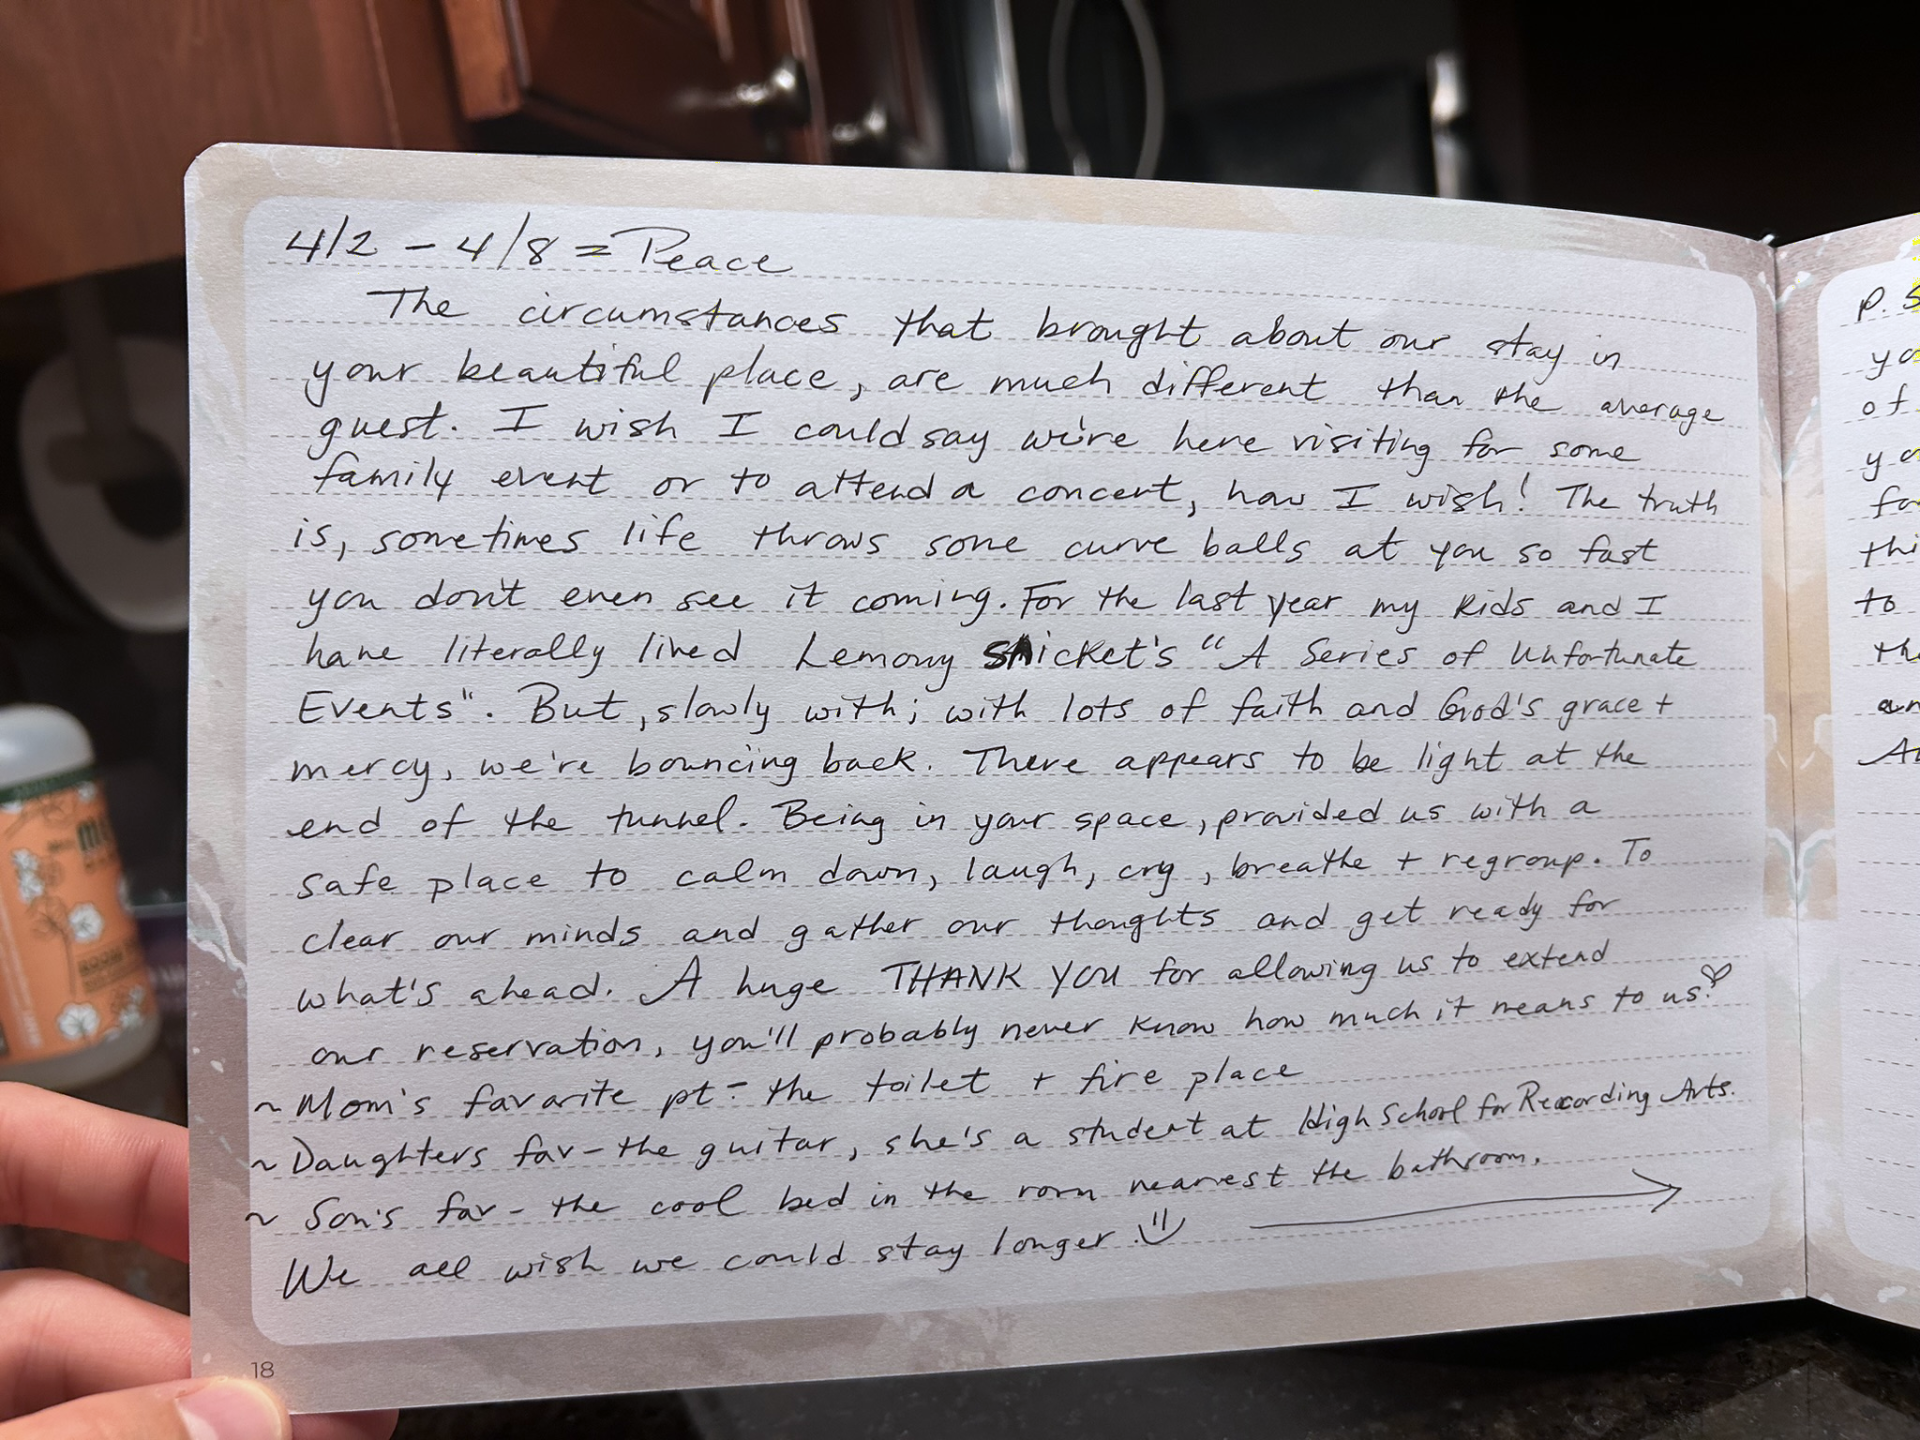 4/2 - 4/8 = Peace
The circumstances that brought about our stay in
your beautiful place, are much different than the average
guest. I wish I could say we're here visiting for some
family event or to attend a concert, how I wish! The truth
is, sometimes life throws some curve balls at you so fast
you don't even see it coming. For the last year my kids and I
have literally lived Lemony Snicket's "A Series of Unfortunate
Events". But, slowly with; with lots of faith and God's grace +
mercy, we're bouncing back. There appears to be light at the
end of the tunnel. Being in your space, provided us with a
safe place to calm down, laugh, cry, breathe + regroup. To
clear our minds and gather our thoughts and get ready for
what's ahead. A huge THANK YOU for allowing us to extend
our reservation, you'll probably never know how much it means to us!
~ Mom's favorite pt- the toilet + fire place
~ Daughters fav - the guitar, she's a student at High School for Recording Arts.
~ Son's fav - the cool bed in the room nearest the bathroom.
We all wish we could stay longer.
18
P.S
of
to